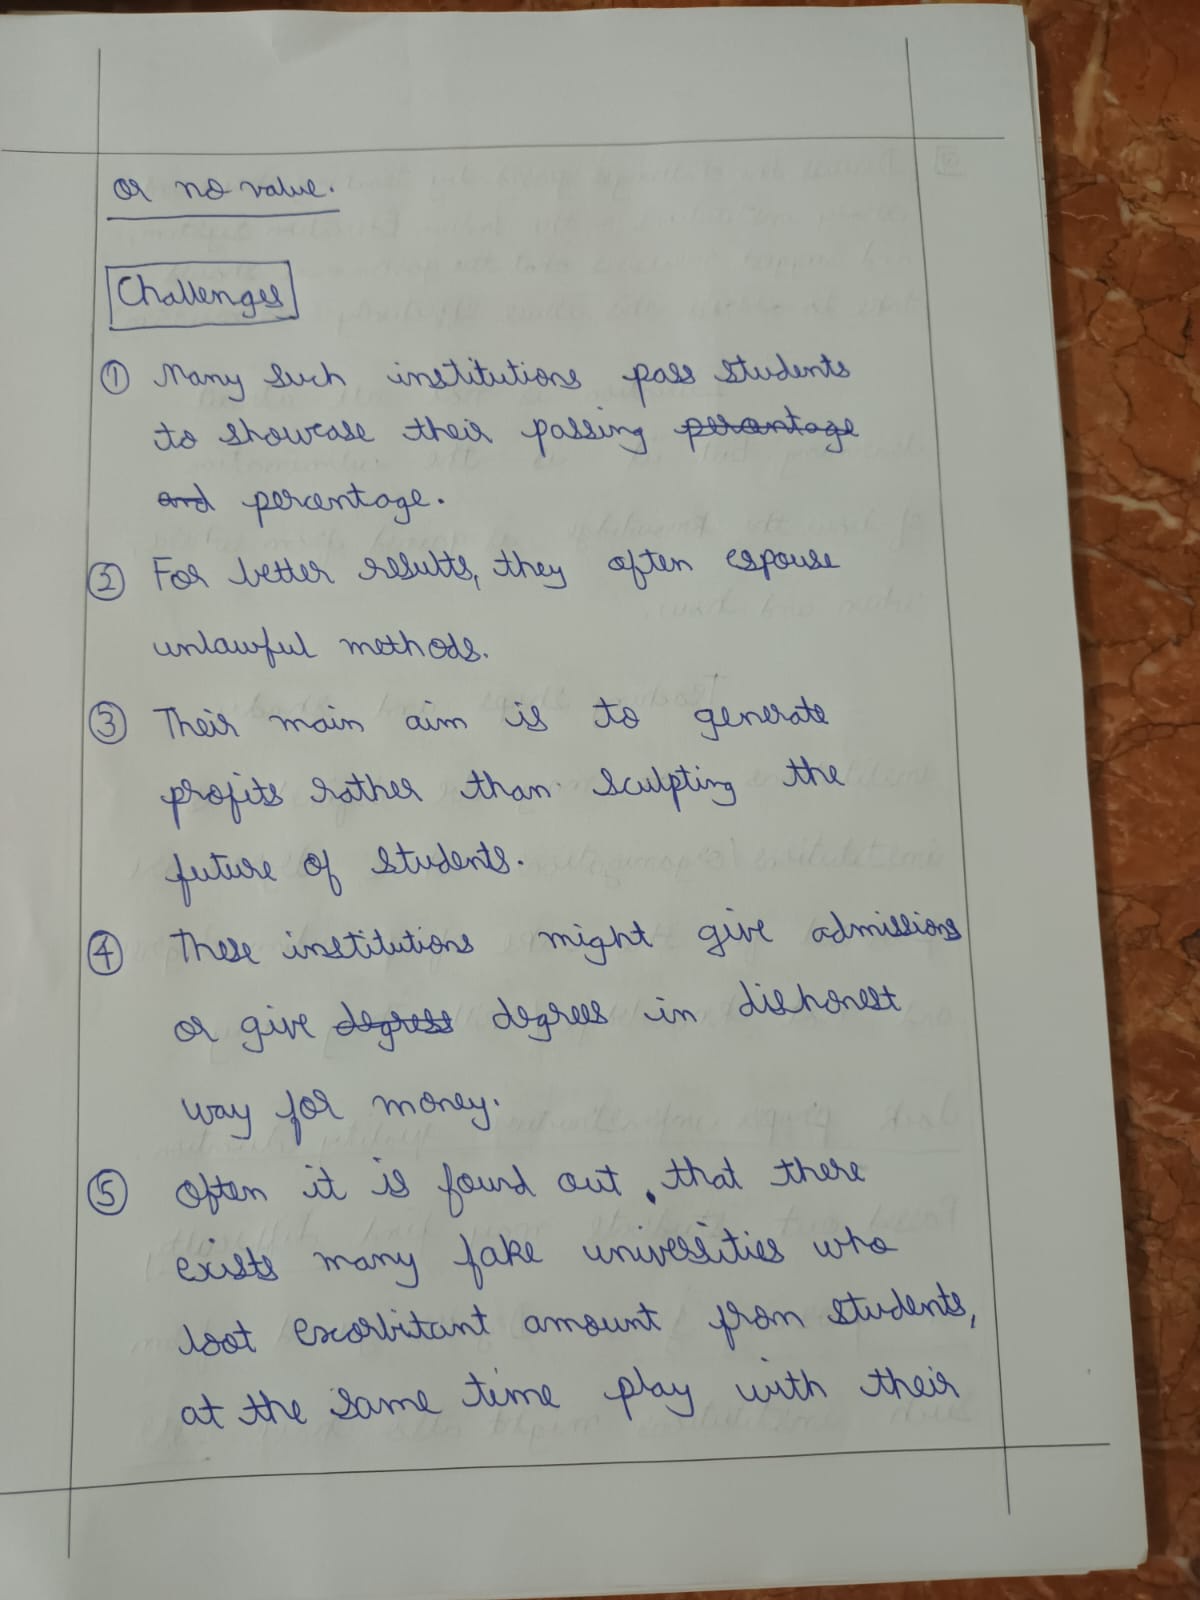 or no value.
Challenges
① Many such institutions pass students
to showcase their passing perantage
and percentage.
② For better results, they often espouse
unlawful methods.
③ Their main aim is to generate
profits rather than sculpting the
future of students.
④ These institutions might give admissions
or give degress degrees in dishonest
way for money.
⑤ Often it is found out, that there
exists many fake universities who
loot exorbitant amount from students,
at the same time play with their